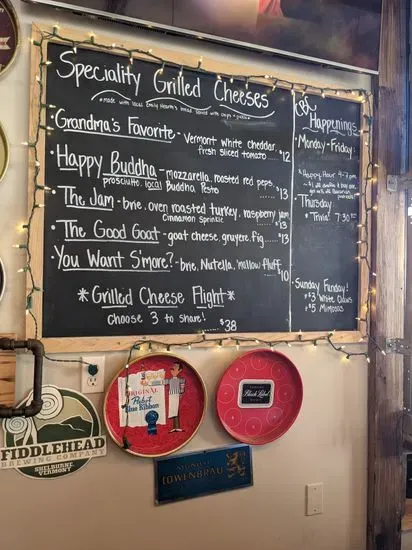 Speciality Grilled Cheeses
*made with local Emily Hearth's bread served with chips + pickle
• Grandma's Favorite - Vermont white cheddar,
fresh sliced tomato ..... $12
• Happy Buddha - mozzarella, roasted red peps,
prosciutto, local Buddha Pesto ..... $13
• The Jam - brie, oven roasted turkey, raspberry jam
cinnamon sprinkle ..... $13
• The Good Goat - goat cheese, gruyere, fig ..... $13
• You Want S'more? - brie, Nutella, 'mallow fluff
..... $10
*Grilled Cheese Flight*
Choose 3 to share! ..... $38
Happenings
Monday-Friday:
*Happy Hour 4-7 pm
Thursday
*Trivia! 7:30
Sunday Funday!
*$3 White Claws
*$5 Mimosas
ORIGINAL
Pabst
Blue Ribbon
Black Label
FIDDLEHEAD
BREWING COMPANY
SHELBURNE,
VERMONT
LÖWENBRÄU